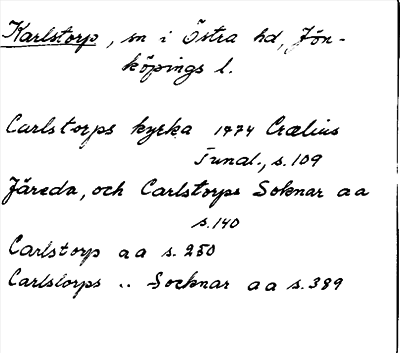 Karlstorp, sn i Östra hd, Jön-
köpings l.
Carlstorps kyrka 1774 Crælius
Tunal., s. 109
Järeda, och Carlstorps Soknar a a
s. 140
Carlstorp a a s. 250
Carlstorps .. Socknar a a s. 389